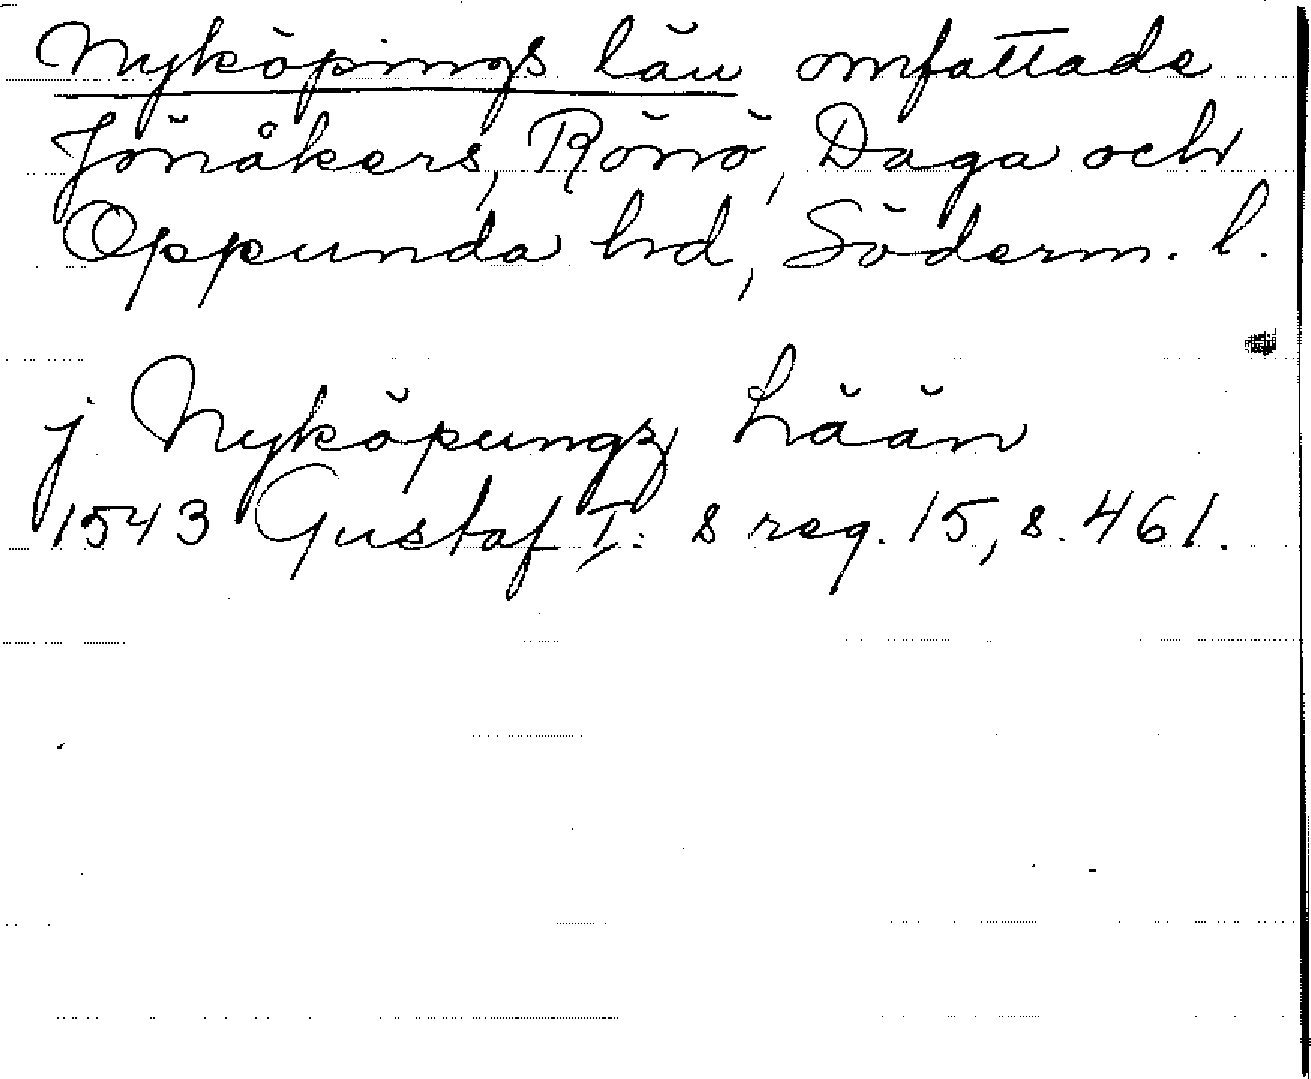 Nyköpings län omfattade
Jönåkers, Rönö, Daga och
Oppunda hd, Söderm. l.
j Nyköpungz Lään
1543 Gustaf I:s reg. 15, s. 461.